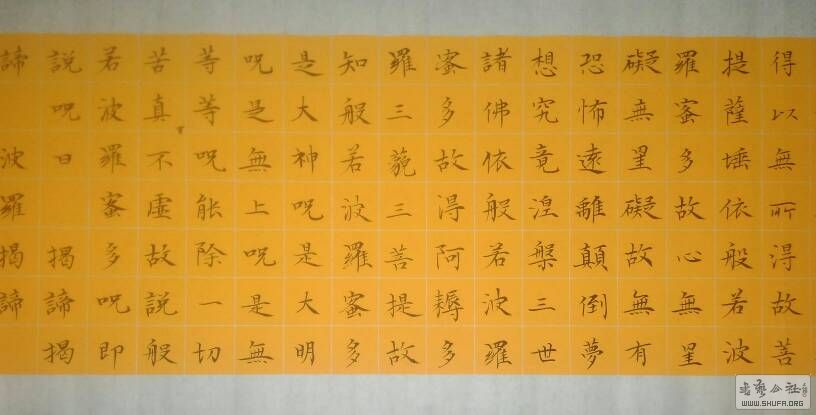 得以無所得故菩
提薩埵依般若波
羅蜜多故心無罣
礙無罣礙故無有
恐怖遠離顛倒夢
想究竟涅槃三世
諸佛依般若波羅
蜜多故得阿耨多
羅三藐三菩提故
知般若波羅蜜多
是大神呪是大明
呪是無上呪是無
等等呪能除一切
苦真不虛故説般
若波羅蜜多呪即
説呪曰 揭諦揭
諦 波羅揭諦
書藝公社
WWW.SHUFA.ORG